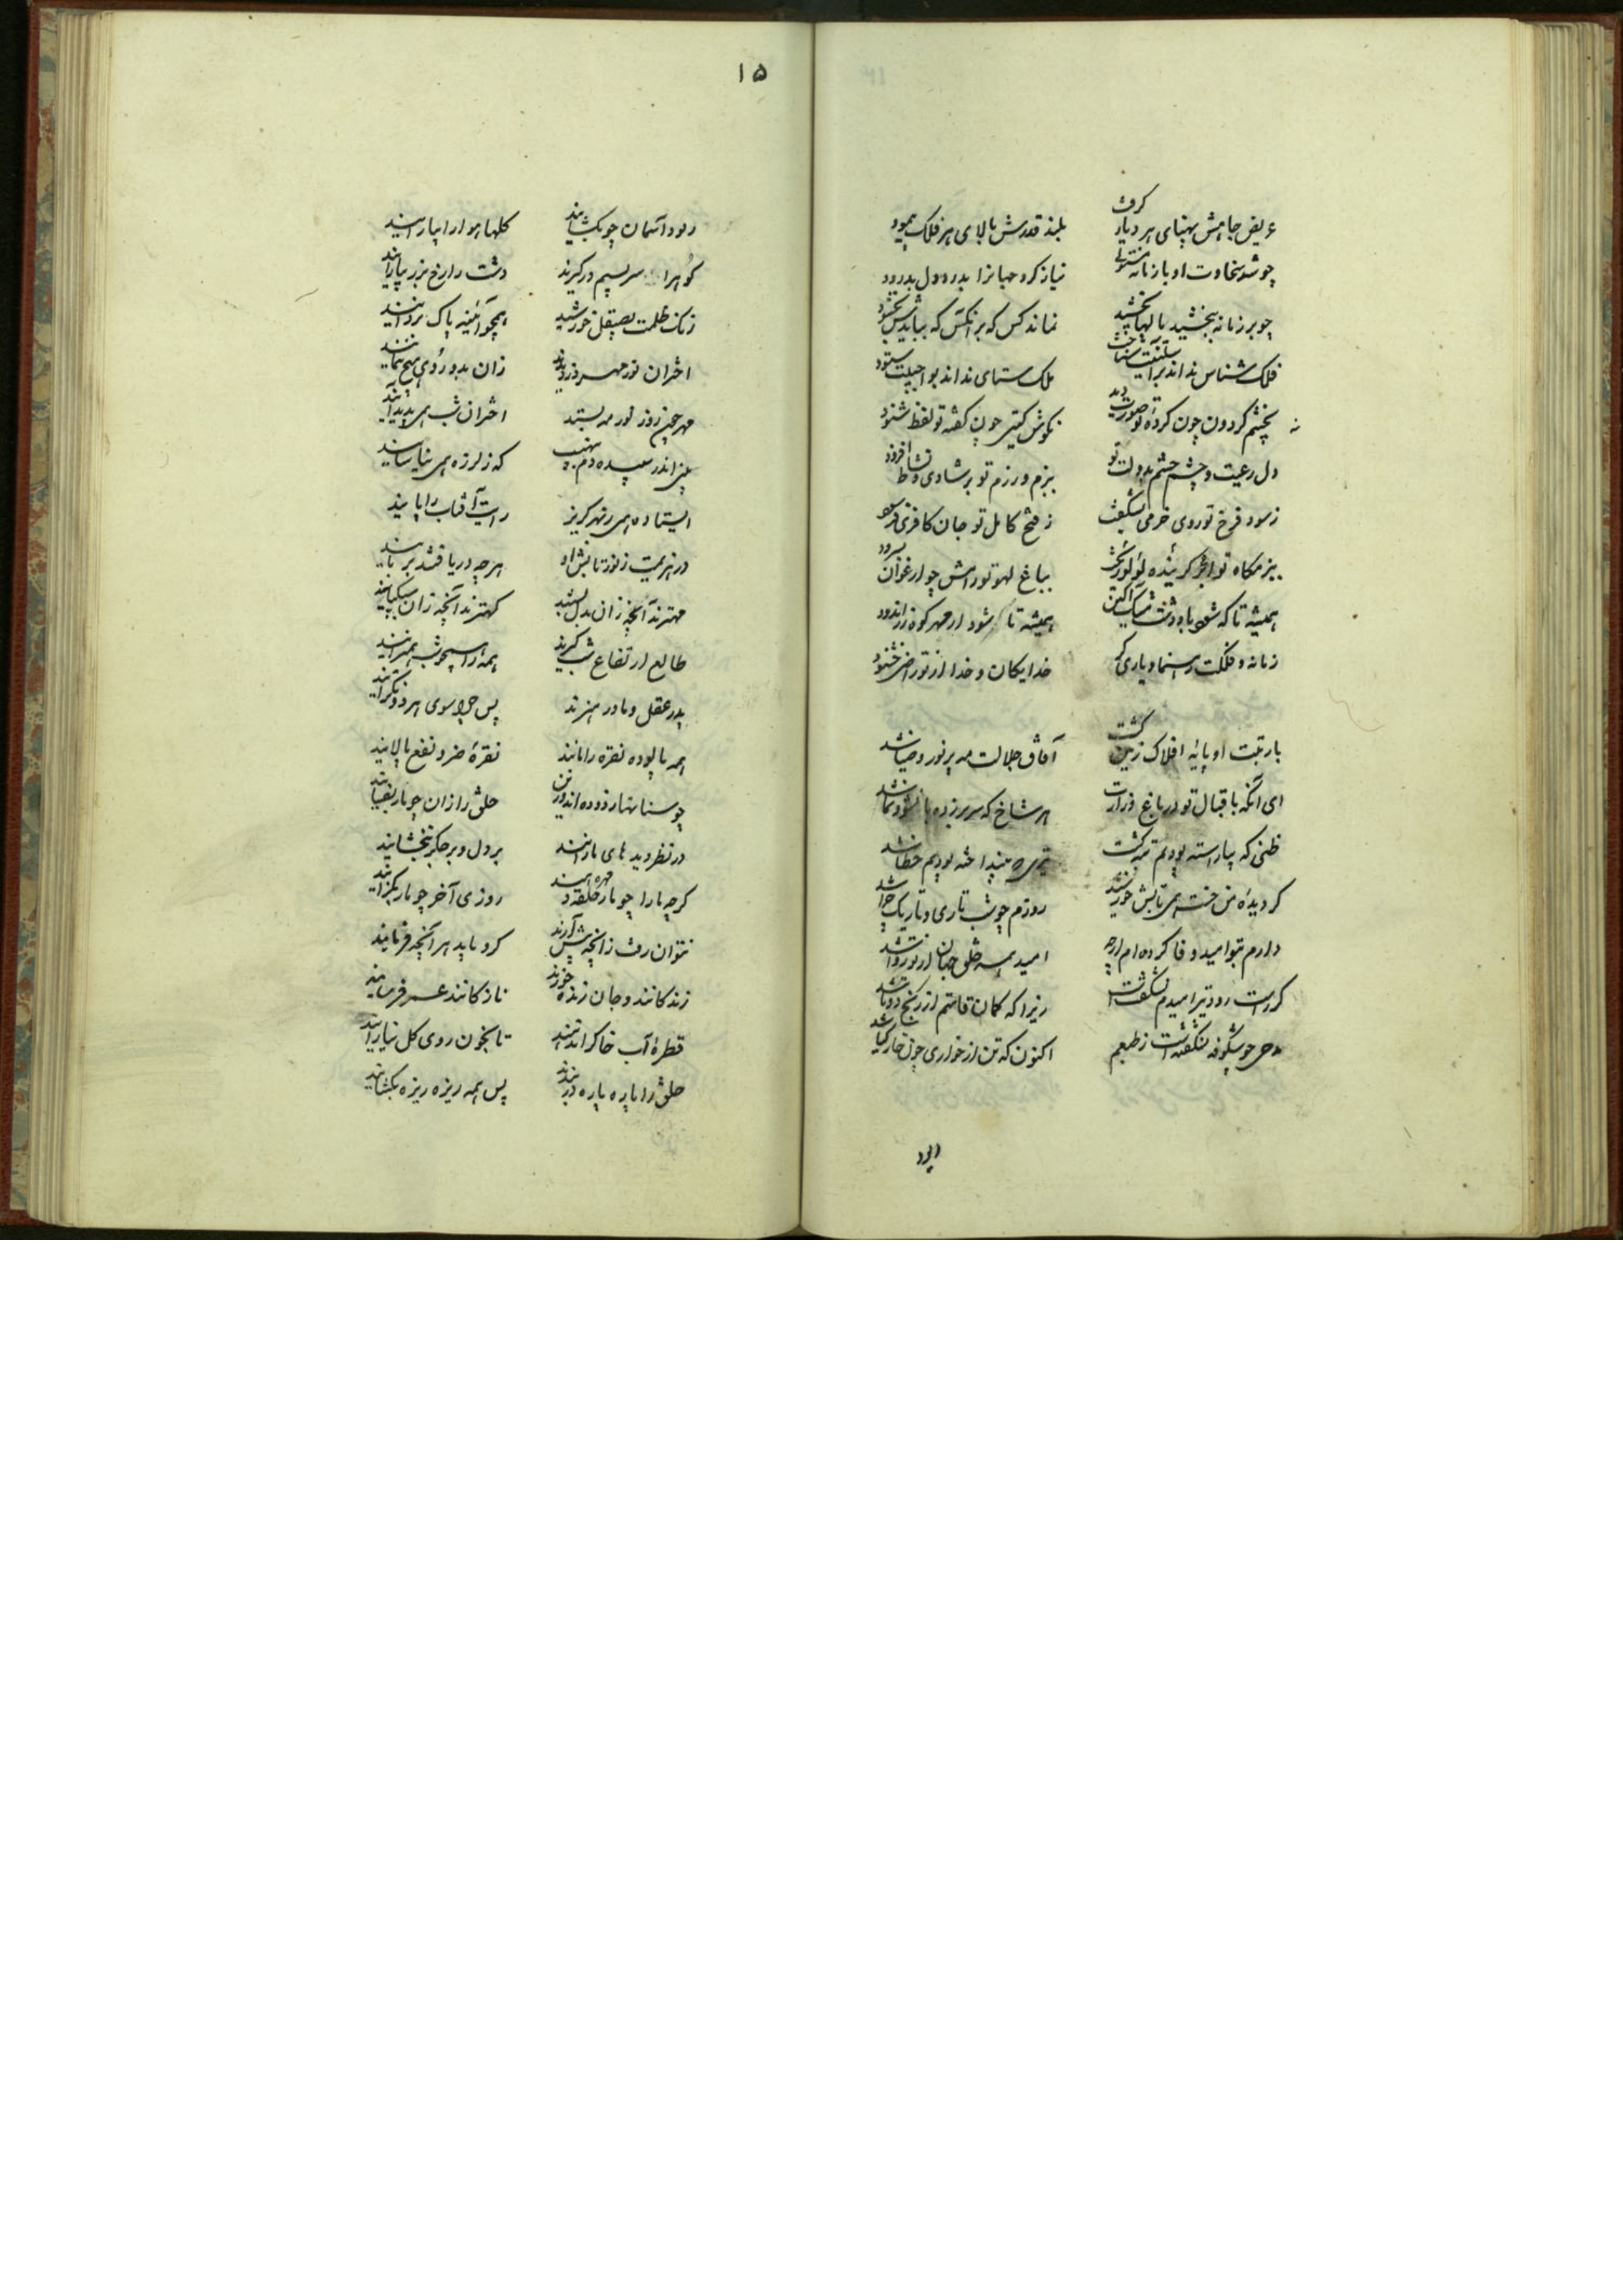 عریض جاهش پهنای هر دیار گرفت بلند قدرش بالای هر فلک پیمود
چو شد سخاوت او با زمانه نیاز کرد جهانرا بدرود
چو بر زمانه ببخشید مالها بخشید نماند کس که بر آنکس که ببایدش بخشود
فلک شناس نداند ملک ستای نداند بواجبیت ستود
بچشم گردون چون کرده تو صورت دید بگوش گیتی چون گفته تو لفظ شنود
دل رعیت و چشم حشم بدولت تو ببزم و رزم تو بر شادی و نشاط افزود
ز سود فرخ تو روی خرمی بشکفت ز فتح کامل تو جان کافری فرسود
ببزمگاه تو ابر گرینده لؤلؤ بباغ لهو تو رامش چو ارغوان
همیشه تا که شود باد و دشت مشک آگین همیشه تا شود از مهر کوه زراندود
زمانه و فلکت رهنما و یاری گر خدایگان و خدا از تو راضی و خشنود
با رتبت او پایه افلاک زمین گشت آفاق جلالت همه پر نور و ضیا شد
ای آنکه باقبال تو در باغ وزارت هر شاخ که سر برزده با نشو و نما شد
ظنی که بیاراسته بودیم تبه گشت تیری که بینداخته بودیم خطا شد
گر دیده من خست همی تابش خورشید روزم چو شب تاری و تاریک چرا شد
دارم بتو امید وفا کرده ام ارچه امید همه خلق جهان از تو روا شد
گر راست رود تیر امیدم نشگفت زیرا که کمان قامتم از رنج دوتا شد
مدحی چو شکوفه بشکفته است ز طبعم اکنون که تن از خواری چون خار گیا شد
ابر
۱۵
در آسمان چو بگشایند گلها هوا را بیارایند
کوه را سر بسیم درگیرند دشت را رخ بزر بیارایند
زنگ ظلمت بصیقل خورشید همچو آئینه پاک بزدایند
اختران نور مهر دزدیدند زان بدو روی هیچ ننمایند
مهر چون روز نور مه بستد اختران شب همی پدید آیند
بینی اندر سپیده دم بنهیب که ز لرزه همی نیاسایند
ایستاده همی ز بهر گریز رایت آفتاب را پایند
در هزیمت ز نور تابش او هر چه دریافتند بربایند
مهترند آنچه زان بدل کهترند آنچه زان بشکیبند
طالع ارتفاع شب گیرند همه را همچو شب بپیمایند
پدر عقل و مادر هنرند پس چرا سوی هر دو نگرایند
همه پالوده نقره را مانند نقره ضر و نفع پالایند
چو سنانها زدوده اند و زتن حلق را زان چو مار بفسایند
در نظر دیده های مارانند بر دل و بر جگر نبخشایند
گر چه ما را چو مار مهره دهند روزی آخر چو مار بگزایند
نتوان رفت ز آنچه پیش آرند کرد باید هر آنچه فرمایند
زندگانند و جان زنده خورند نازکانند و عمر فرسایند
قطره آب خاک را ندهند تا بخون روی گل نیارایند
حلق را پاره پاره در بندند پس همه ریزه ریزه بگشایند